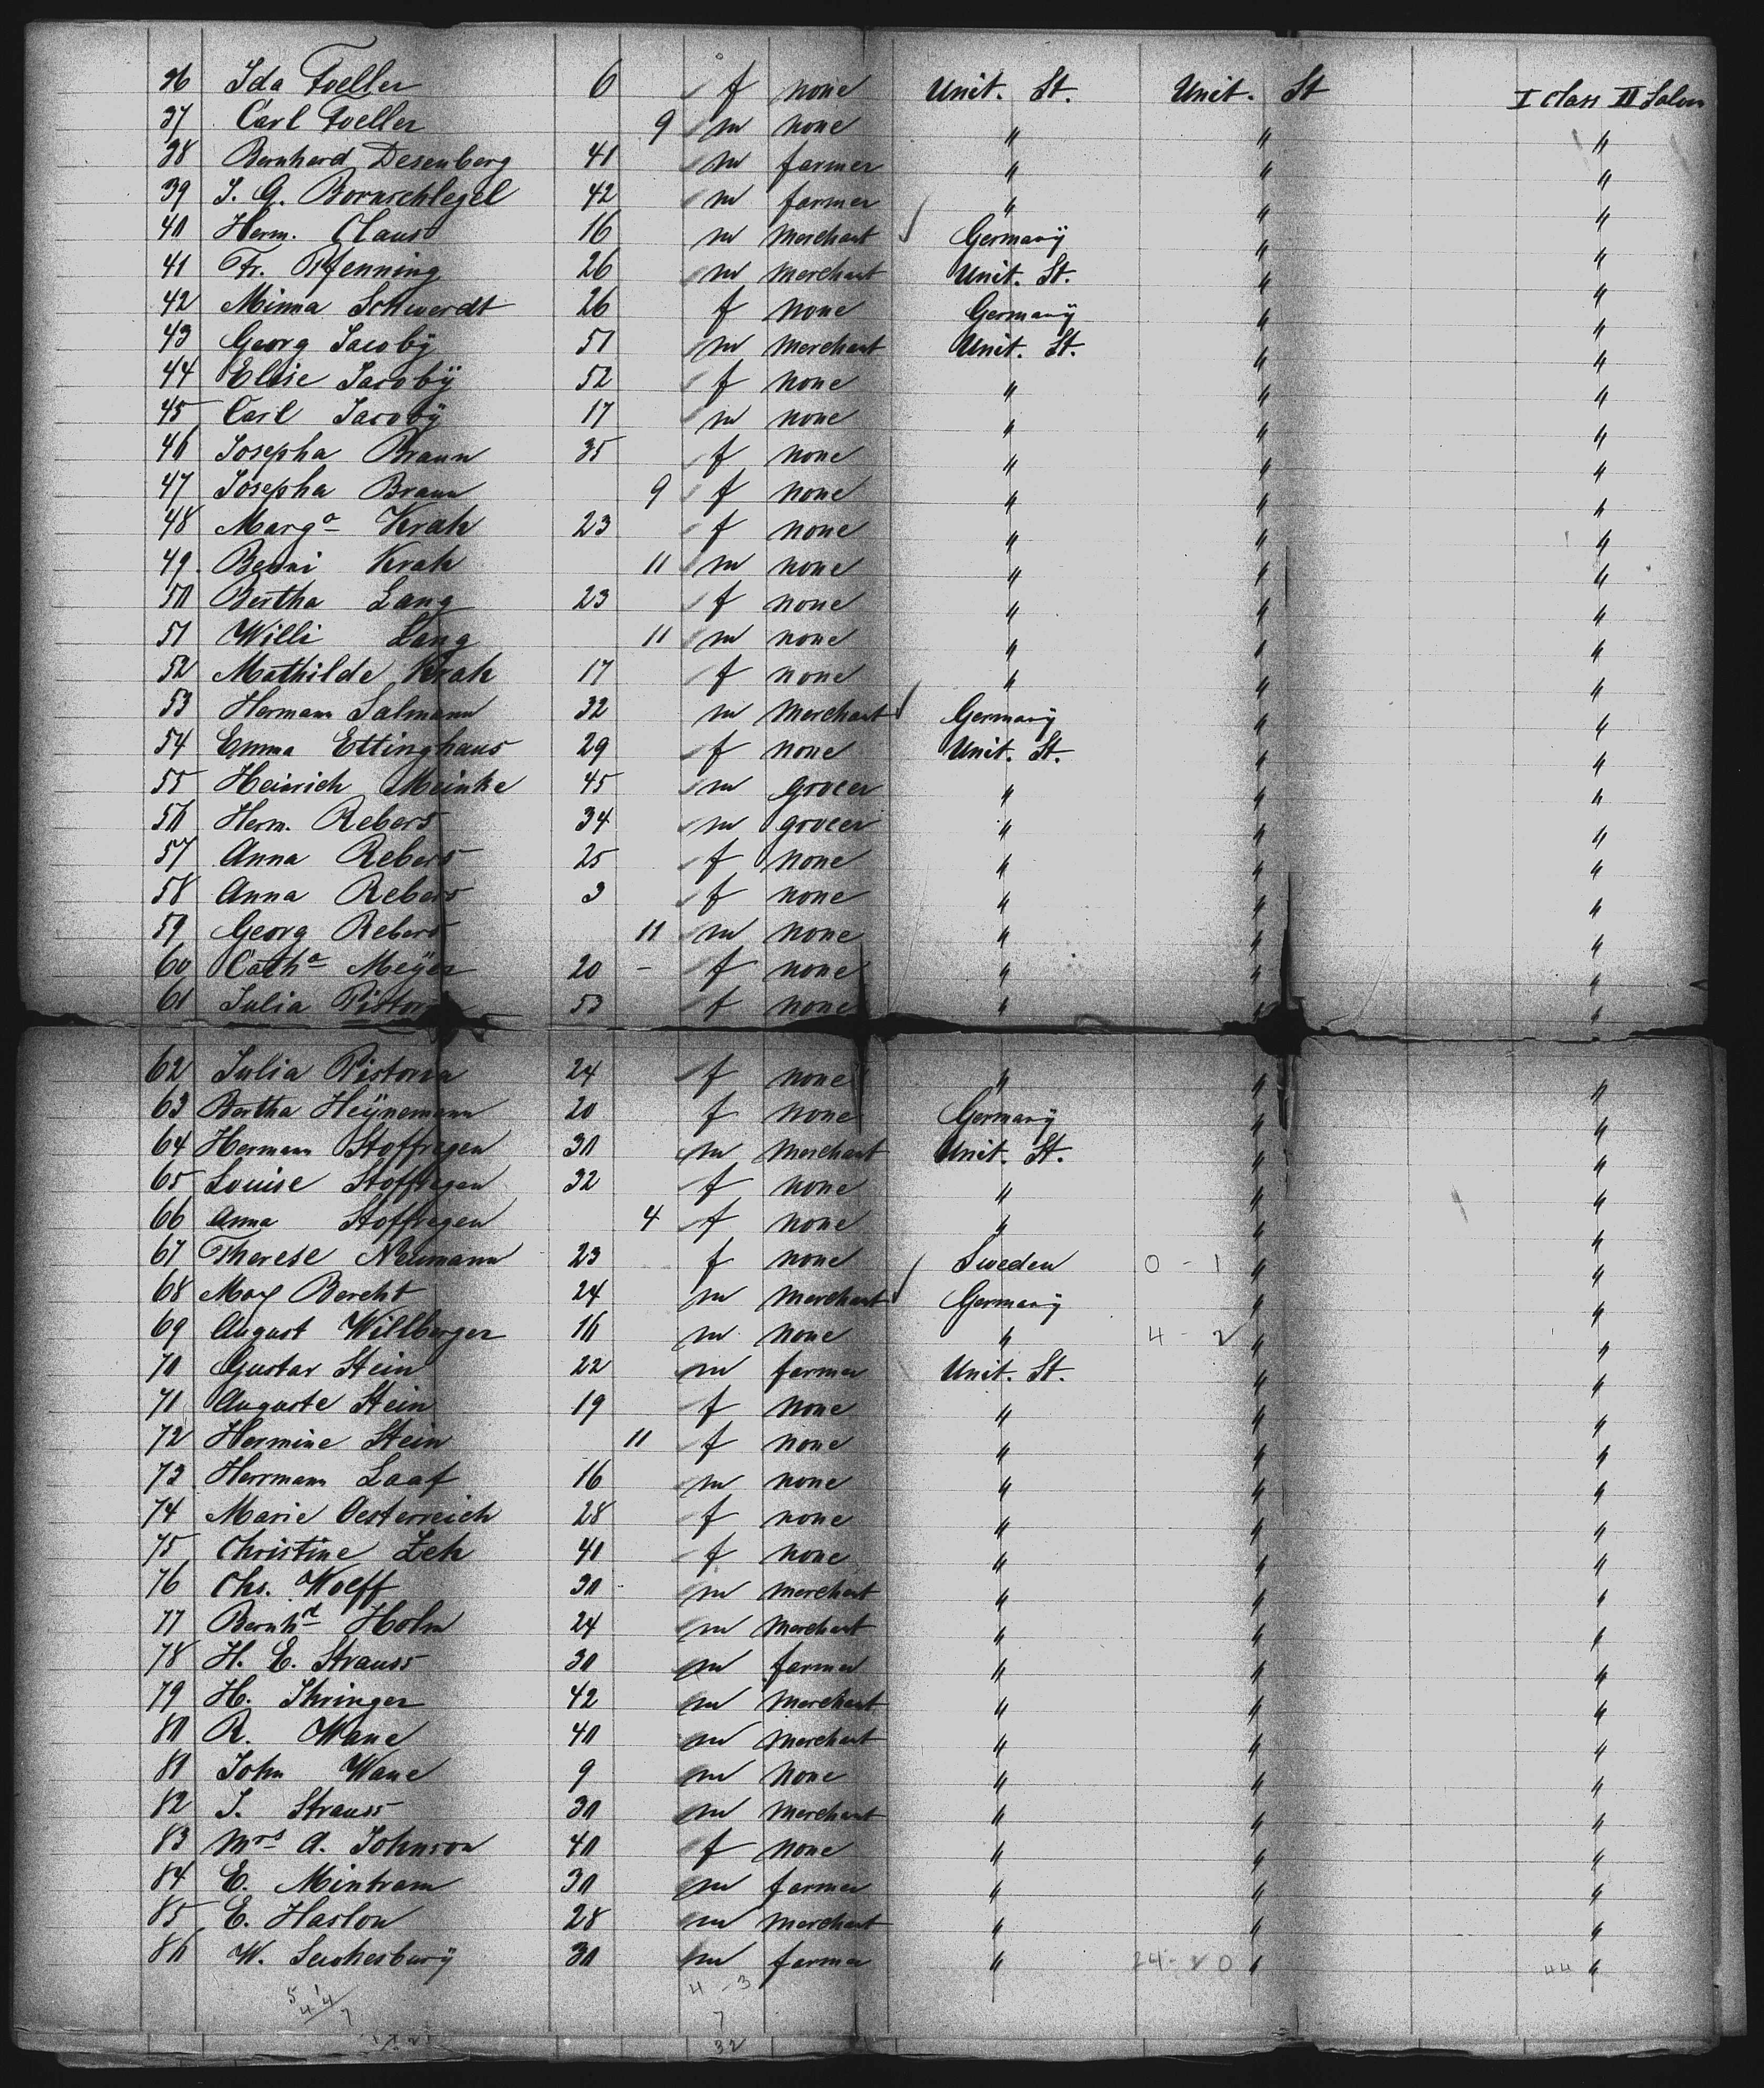 36 Ida Foeller 6 f none Unit. St. Unit. St I class II Salon
37 Carl Foeller 9 m none " " "
38 Bernhard Desenberg 41 m farmer " " "
39 I. G. Bornschlegel 42 m farmer " " "
40 Herm. Claus 16 m merchant Germany " "
41 Fr. Pfenning 26 m merchant Unit. St. " "
42 Minna Schwerdt 26 f none Germany " "
43 Georg Jacoby 51 m merchant Unit. St. " "
44 Elise Jacoby 52 f none " " "
45 Carl Jacoby 17 m none " " "
46 Josepha Braun 35 f none " " "
47 Josepha Braun 9 f none " " "
48 Marga Krah 23 f none " " "
49. Benni Krah 11 m none " " "
50 Bertha Lang 23 f none " " "
51 Willi Lang 11 m none " " "
52 Mathilde Krah 17 f none " " "
53 Hermann Salmann 32 m merchant Germany " "
54 Emma Ettinghaus 29 f none Unit. St. " "
55 Heinrich Meinke 45 m grocer " " "
56 Herm. Rebers 34 m grocer " " "
57 Anna Rebers 25 f none " " "
58 Anna Rebers 3 f none " " "
59 Georg Rebers 11 m none " " "
60 Catha Meyer 20 - f none " " "
61 Julia 53 f none " " "
62 Julia Pistorra 24 f none " " "
63 Bertha Heynemann 20 f none Germany " "
64 Hermann Stoffregen 30 m merchant Unit. St. " "
65 Louise Stoffregen 32 f none " " "
66 Anna Stoffregen 4 f none " " "
67 Therese Neumann 23 f none Sweden 0 - 1 " "
68 Max Bercht 24 m merchant Germany " "
69 August Willberger 16 m none " 4 - 2 " "
70 Gustav Stein 22 m farmer Unit. St. " "
71 Auguste Stein 19 f none " " "
72 Hermine Stein 11 f none " " "
73 Herrmann Laaf 16 m none " " "
74 Marie Oesterreich 28 f none " " "
75 Christine Zeh 40 f none " " "
76 Chs. Wolff 30 m merchant " " "
77 Bernhd Holm 24 m merchant " " "
78 H. E. Strauss 30 m farmer " " "
79 H. Stringer 42 m merchant " " "
80 R. Wane 40 m merchant " " "
81 John Wane 9 m none " " "
82 I. Strauss 30 m merchant " " "
83 Mrs A. Johnson 40 f none " " "
84 E. Mintram 30 m farmer " " "
85 E. Haslon 28 m merchant " " "
86 W. 30 m farmer " 24 - 20 " 44 "
4 - 3
7
32